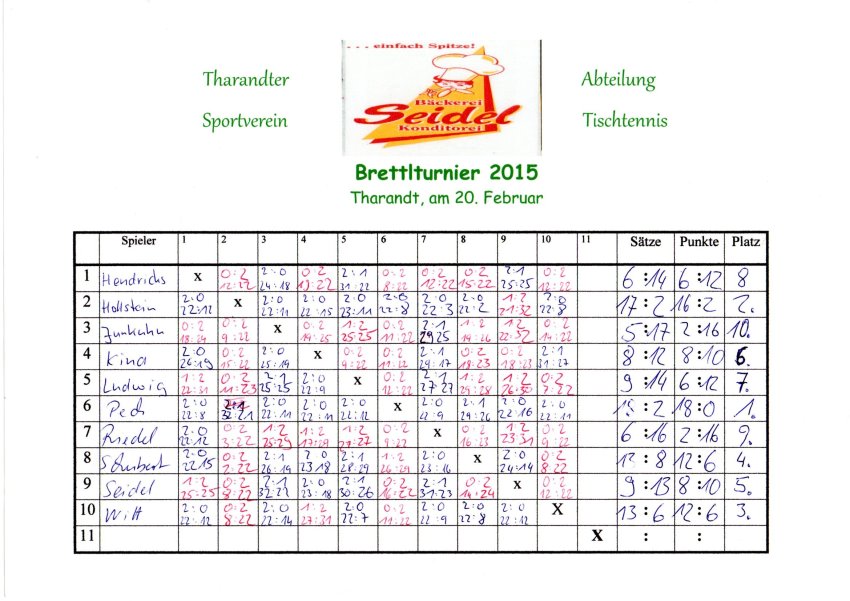 ... einfach Spitze!
Tharandter Abteilung
Bäckerei
Seidel
Konditorei
Sportverein Tischtennis
Brettlturnier 2015
Tharandt, am 20. Februar
Spieler 1 2 3 4 5 6 7 8 9 10 11 Sätze Punkte Platz
1 Hendrichs x 0:2 2:0 0:2 2:1 0:2 0:2 0:2 2:1 0:2 6:14 6:12 8
12:22 24:18 8:22 12:22 15:22 25:25 12:22
2 Hollstein 2:0 x 2:0 2:0 2:0 2:0 2:0 1:2 2:0 17:2 16:2 2.
22:12 22:15 23:11 22:8 22:3 22:2 21:32 22:8
3 0:2 0:2 x 0:2 1:2 0:2 2:1 1:2 1:2 0:2 5:17 2:16 10.
18:24 9:22 19:25 25:25 11:22 19:26 22:32 14:22
4 0:2 0:2 2:0 x 0:2 0:2 2:1 0:2 0:2 2:1 8:12 8:10 6.
15:22 25:19 9:22 11:22 29:17 18:23 18:23 31:27
5 Ludwig 1:2 0:2 2:1 2:0 x 0:2 2:1 1:2 1:2 0:2 9:14 6:12 7.
22:31 11:23 25:25 22:9 12:22 27:27 29:28 26:30 7:22
6 Pech 2:0 2:1 2:0 2:0 2:0 x 2:0 2:1 2:0 2:0 :2 18:0 1.
22:8 32:21 22:11 22:11 22:12 29:26 22:16 22:11
7 Riedel 2:0 0:2 1:2 1:2 1:2 0:2 x 0:2 1:2 0:2 6:16 2:16 9.
22:12 3:22 25:29 17:29 27:27 9:22 16:23 23:31 9:22
8 Schubert 2:0 0:2 2:1 2:0 2:1 1:2 2:0 x 2:0 0:2 :8 12:6 4.
22:15 2:22 26:19 23:18 28:29 26:29 23:16 24:14 8:22
9 Seidel 1:2 0:2 2:1 2:0 2:1 0:2 2:1 0:2 x 0:2 9:13 8:10 5.
25:25 8:22 32:22 23:18 30:26 16:22 31:23 14:24 12:22
10 Witt 2:0 0:2 2:0 1:2 2:0 0:2 2:0 2:0 2:0 X 13:6 12:6 3.
22:12 8:22 22:14 27:31 22:7 11:22 22:9 22:8 22:12
11 X : :